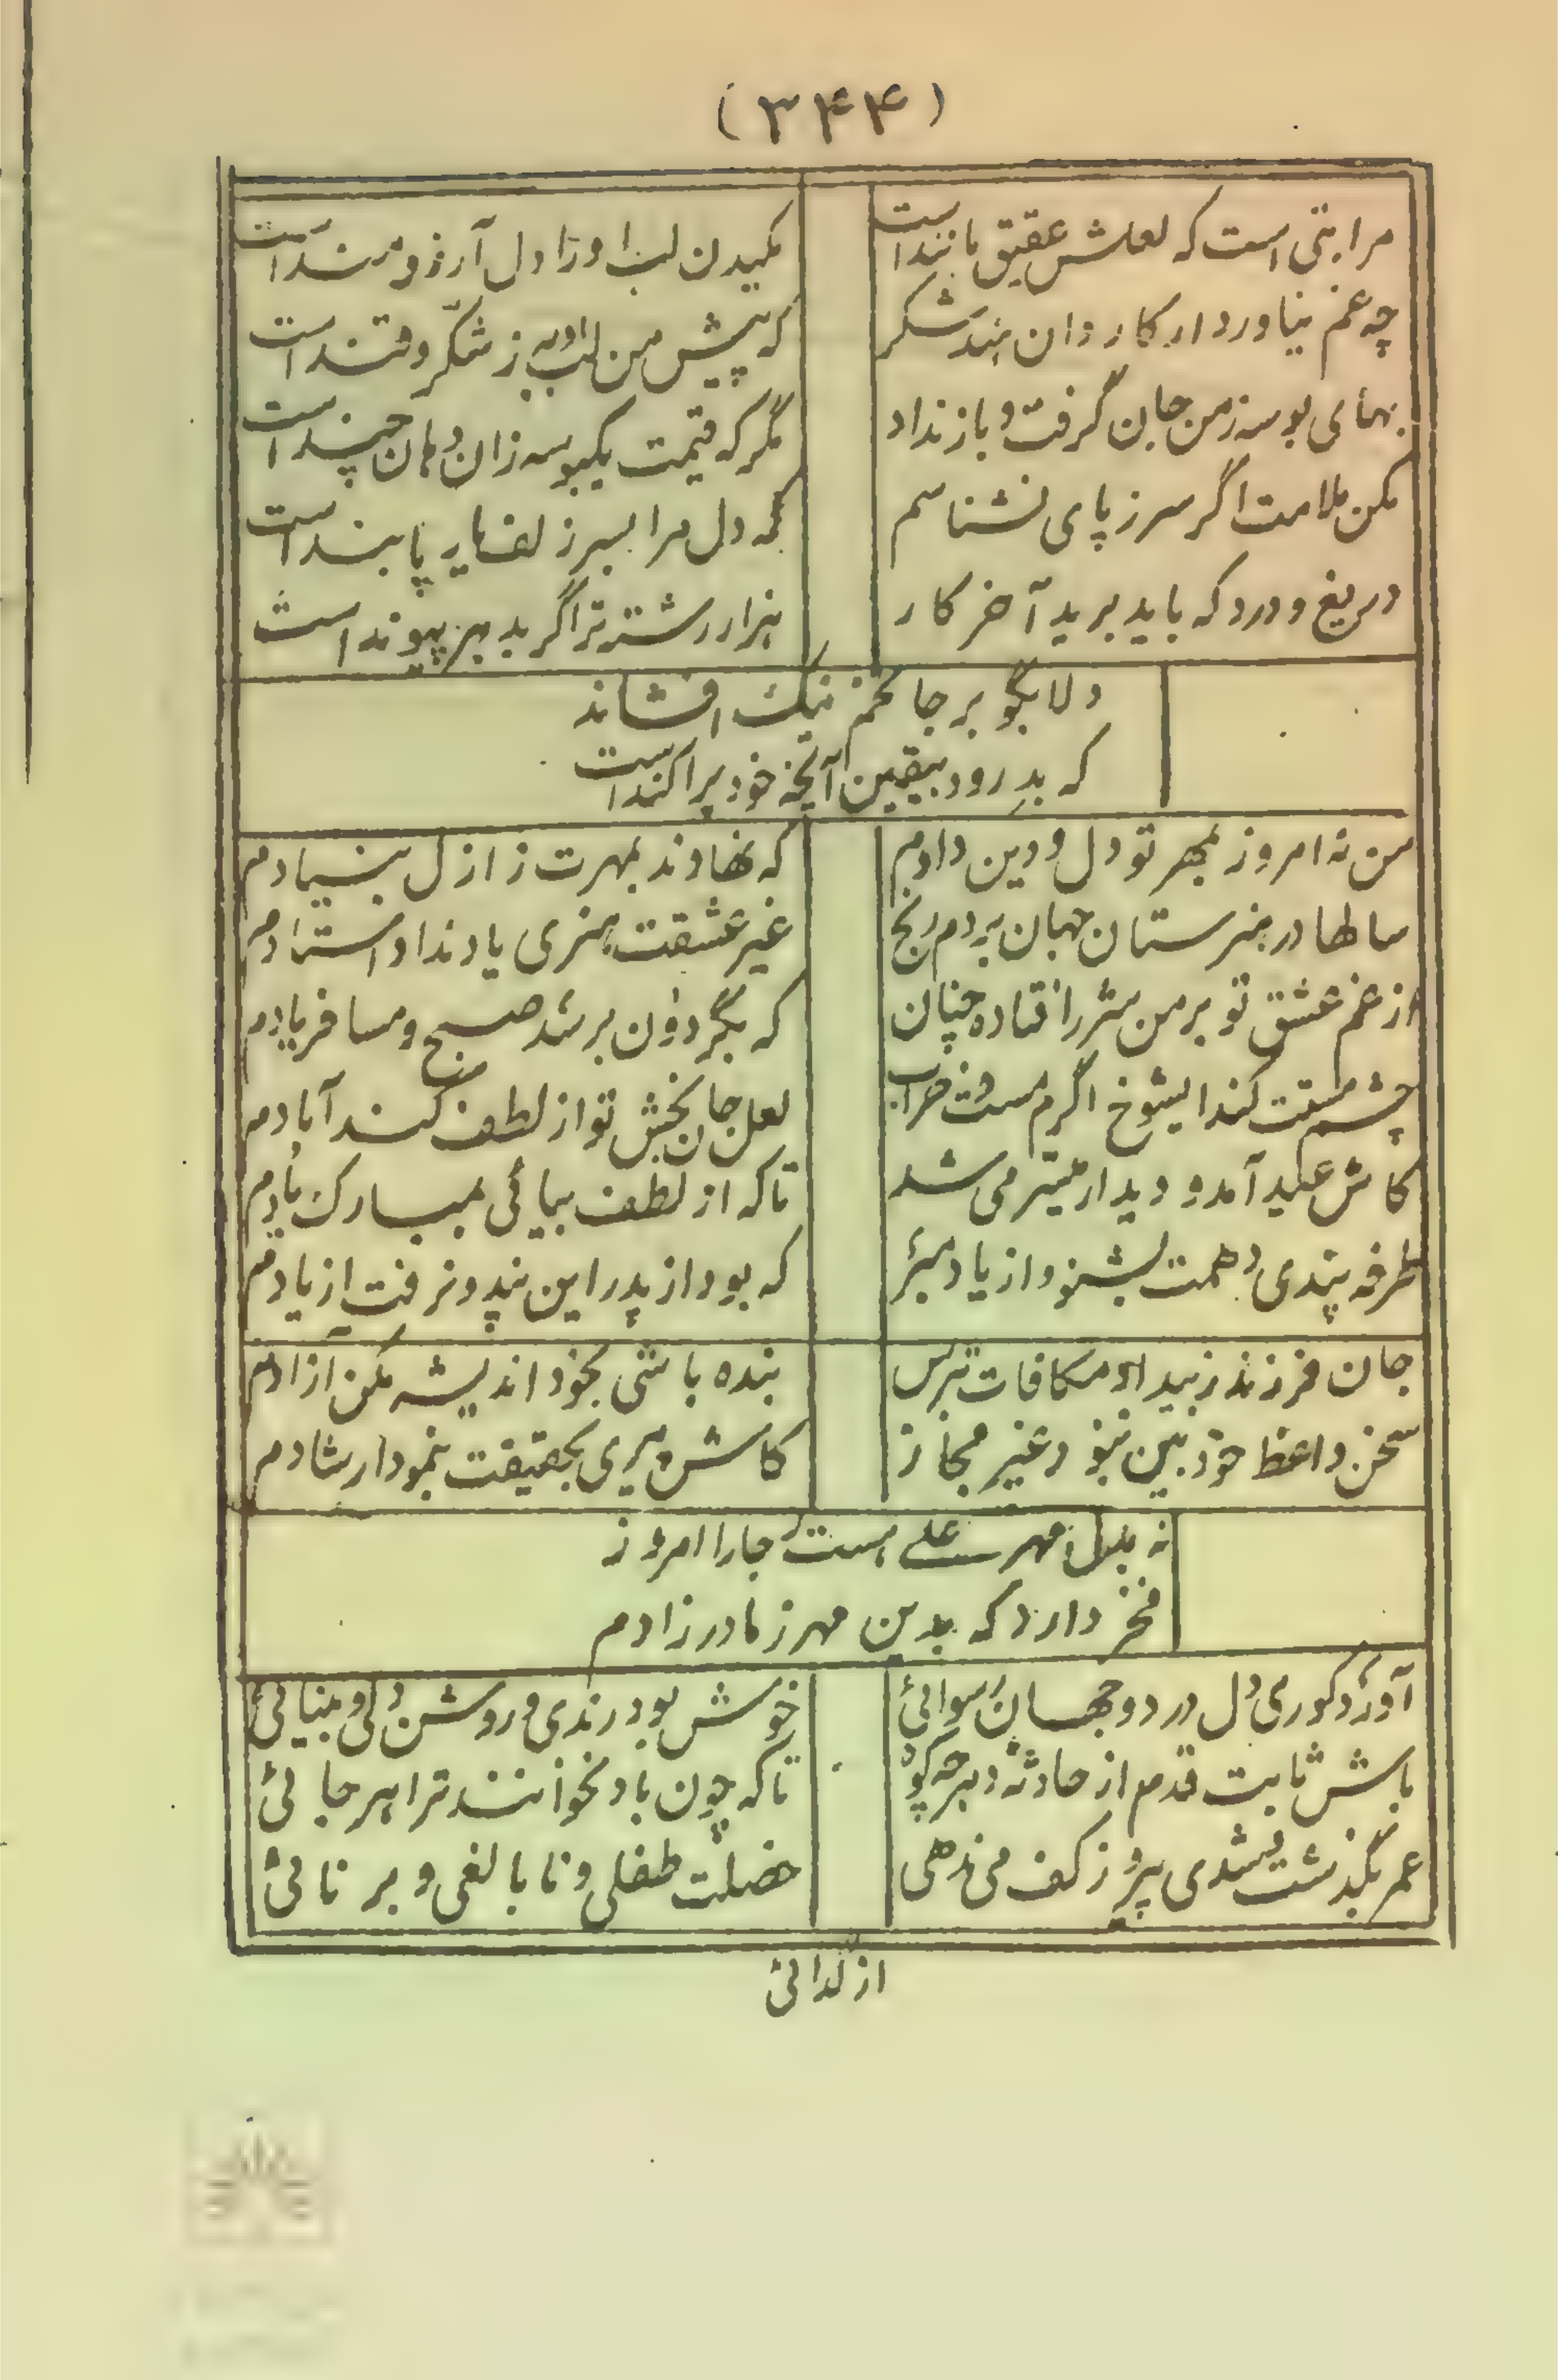 (۳۴۴)
مرا بتی است که لعلش عقیق مانند است
مکیدن لب او را دل آرزومند است
چه غم نیاورد ار کاروان هند شکر
که پیش من لب او به ز شکّر و قند است
بهای بوسه ز من جان گرفت و باز نداد
مگر که قیمت یکبوسه زان دهان چند است
مکن ملامت اگر سر ز پای نشناسم
که دل مرا بسر زلف یار پابند است
دریغ و درد که باید برید آخر کار
هزار رشته ترا گر بدهر پیوند است
دلا بگو بر جا تخم نیک افشاند
که بدرود بیقین آنچه خود پراکند است
من نه امروز بمهر تو دل و دین دادم
که نهادند بمهرت ز ازل بنیادم
سالها در هنرستان جهان بردم رنج
غیر عشقت هنری یاد نداد استادم
از غم عشق تو بر من شرر افتاده چنان
که بگردون برسد صبح و مسا فریادم
چشم مستت کند ایشوخ اگرم مست و خراب
لعل جان بخش تو از لطف کند آبادم
کاش عید آمد و دیدار میسّر می شد
تا که از لطف بیائی بمبارک بادم
طرفه پندی دهمت بشنو و از یاد مبر
که بود از پدر این پند و نرفت از یادم
جان فرزند ز بیداد مکافات بترس
بنده باشی بخود اندیشه مکن آزادم
سخن واعظ خودبین نبود غیر مجاز
کاش میری بحقیقت بنمود ارشادم
نه بدل مهر علی است جا را امروز
فخر دارد که بدین مهر ز مادر زادم
آورد کوری دل در دو جهان رسوائی
خوش بود رندی و روشن دلی و بینائی
باش ثابت قدم از حادثه هر چه کو
تا که چون باد نخوانند ترا هر جائی
عمر بگذشت شدی پیر و ز کف می ندهی
خصلت طفلی و نابالغی و برنائی
از گدائی